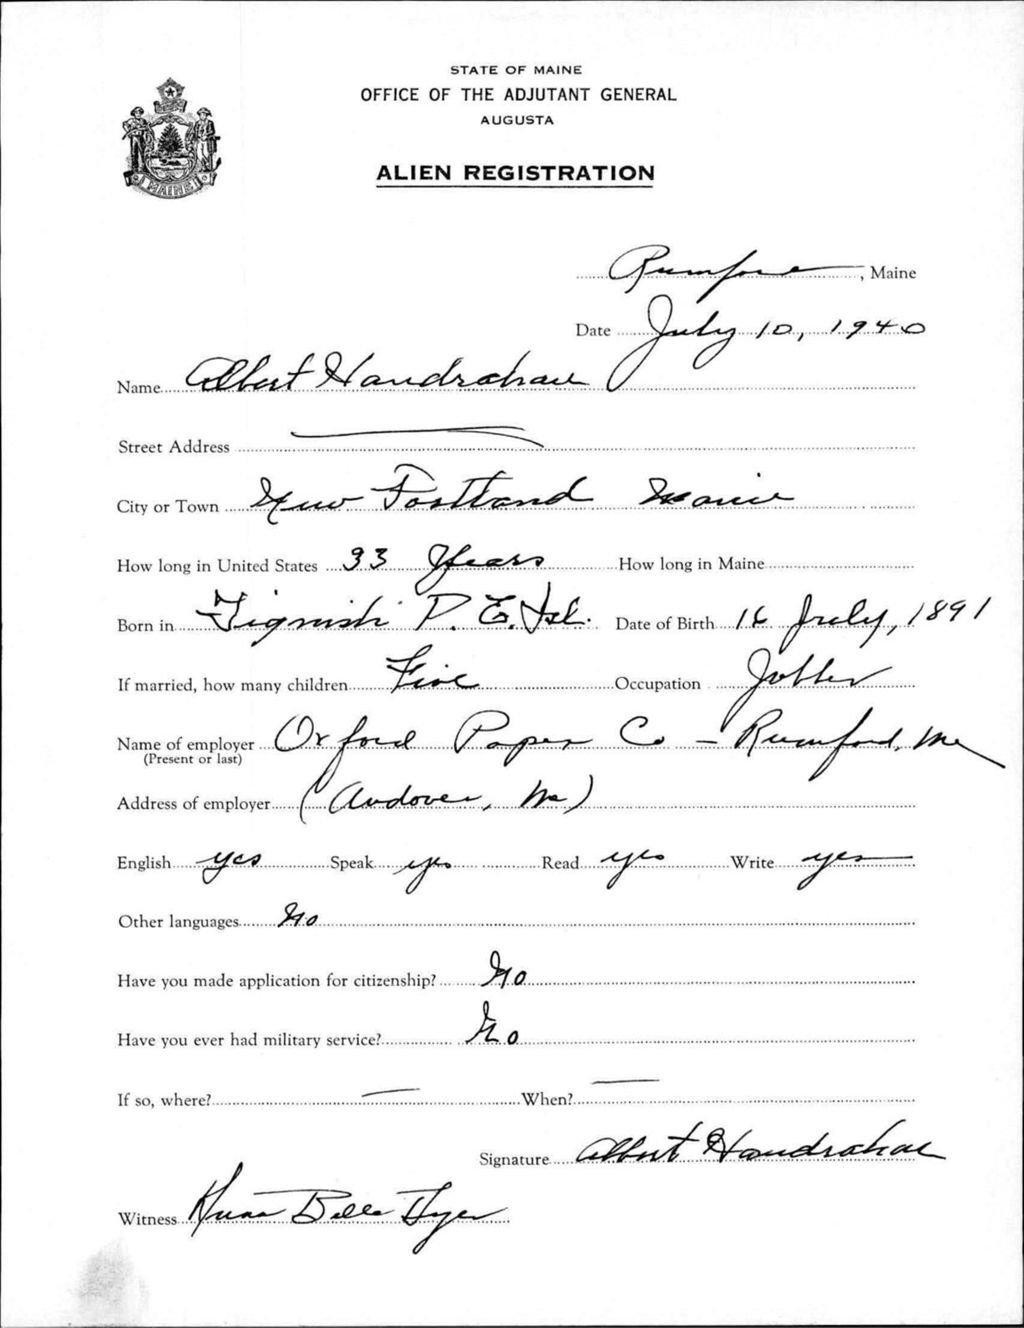 STATE OF MAINE
OFFICE OF THE ADJUTANT GENERAL
AUGUSTA
ALIEN REGISTRATION
MAINE
Rumford, Maine
Date July 10, 1940
Name Albert Handrahan
Street Address
City or Town New Portland Maine
How long in United States 33 Years How long in Maine
Born in Tignish P. E. Isl. Date of Birth 16 July, 1891
If married, how many children Five Occupation Jobber
Name of employer Oxford Paper Co - Rumford, Me
(Present or last)
Address of employer (Andover, Me)
English yes Speak yes Read yes Write yes
Other languages No
Have you made application for citizenship? No
Have you ever had military service? No
If so, where? — When? —
Signature Albert Handrahan
Witness Belle Dyer